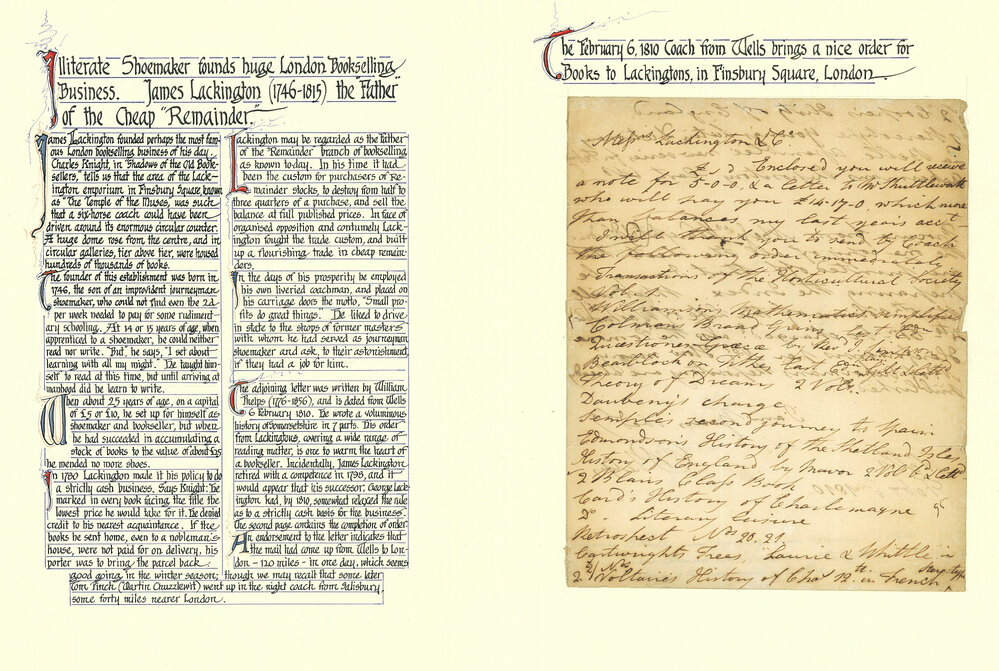 Illiterate Shoemaker founds huge London Bookselling
Business. James Lackington (1746-1815) the "Father"
of the Cheap "Remainder."
James Lackington founded perhaps the most fam-
ous London bookselling business of his day.
Charles Knight, in "Shadows of the Old Book-
sellers," tells us that the area of the Lack-
ington emporium in Finsbury Square, known
as "The Temple of the Muses, was such
that a six-horse coach could have been
driven around its enormous circular counter.
A huge dome rose from the centre, and in
circular galleries, tier above tier, were housed
hundreds of thousands of books.
The founder of this establishment was born in
1746, the son of an improvident journeyman
shoemaker, who could not find even the 2d
per week needed to pay for some rudiment-
ary schooling. At 14 or 15 years of age, when
apprenticed to a shoemaker, he could neither
read nor write. "But", he says, "I set about
learning with all my might." He taught him-
self to read at this time, but until arriving at
manhood did he learn to write.
When about 25 years of age, on a capital
of £5 or £10, he set up for himself as
shoemaker and bookseller, but when
he had succeeded in accumulating a
stock of books to the value of about £25
he mended no more shoes.
In 1780 Lackington made it his policy to do
a strictly cash business. Says Knight: "He
marked in every book facing the title the
lowest price he would take for it. He denied
credit to his nearest acquaintance. If the
books he sent home, even to a nobleman's
house, were not paid for on delivery, his
porter was to bring the parcel back.
Lackington may be regarded as the father
of the "Remainder" branch of bookselling
as known to-day. In his time it had
been the custom for purchasers of Re-
mainder stocks, to destroy from half to
three quarters of a purchase, and sell the
balance at full published prices. In face of
organised opposition and contumely Lack-
ington fought the trade custom, and built
up a flourishing trade in cheap remain-
ders.
In the days of his prosperity he employed
his own liveried coachman, and placed on
his carriage doors the motto, "Small pro-
fits do great things." He liked to drive
in state to the shops of former masters
with whom he had served as journeyman
shoemaker and ask, to their astonishment,
if they had a job for him.
The adjoining letter was written by William
Phelps (1776-1856), and is dated from Wells
6 February 1810. He wrote a voluminous
history of Somersetshire in 7 parts. His order
from Lackingtons, covering a wide range of
reading matter, is one to warm the heart of
a bookseller. Incidentally, James Lackington
retired with a competence in 1798, and it
would appear that his successor, George Lack-
ington had, by 1810, somewhat relaxed the rule
as to a strictly cash basis for the business.
The second page contains the completion of order.
An endorsement to the letter indicates that
the mail had come up from Wells to Lon-
don - 120 miles - in one day, which seems
good going in the winter season; though we may recall that some later
Tom Pinch (Martin Chuzzlewit) went up in the night coach from Salisbury,
some forty miles nearer London.
The February 6, 1810 Coach from Wells brings a nice order for
Books to Lackingtons, in Finsbury Square, London.
Messrs Lackington & Co
Enclosed you will receive
a note for 5-0-0, & a letter to Mr Shuttleworth
who will pay you £14-17-0, which more
than balances my last years acct
I will thank you to send by Coach
the following order
Transactions of the Horticultural Society
Williamsons Mathematics simplified
Colman Broad Grins
by the Revd
on the
Theory of Dreams 2 Vols
Daubeny's charge
Semple's second journey to Spain
Edmondson's History of the Shetland Isles
History of England by Mavor 2 Vol
2 Blairs Class Book
Card's History Charlemagne
Do. Literary
Retrospect Nos 20.21.
Cartwrights Laurie & Whittle
2 Voltaires History of Chas 12th in French